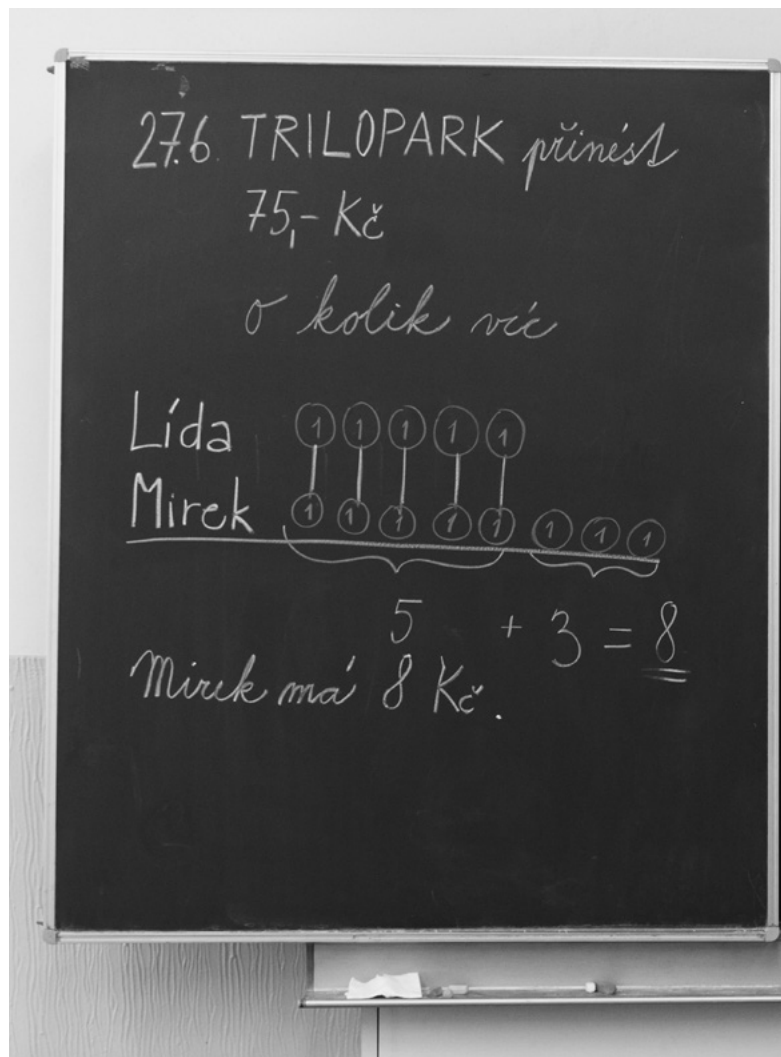 27.6. TRILOPARK přinést
75,- Kč
o kolik víc
Lída 1 1 1 1 1
Mirek 1 1 1 1 1 1 1 1
5 + 3 = 8
Mirek má 8 Kč.